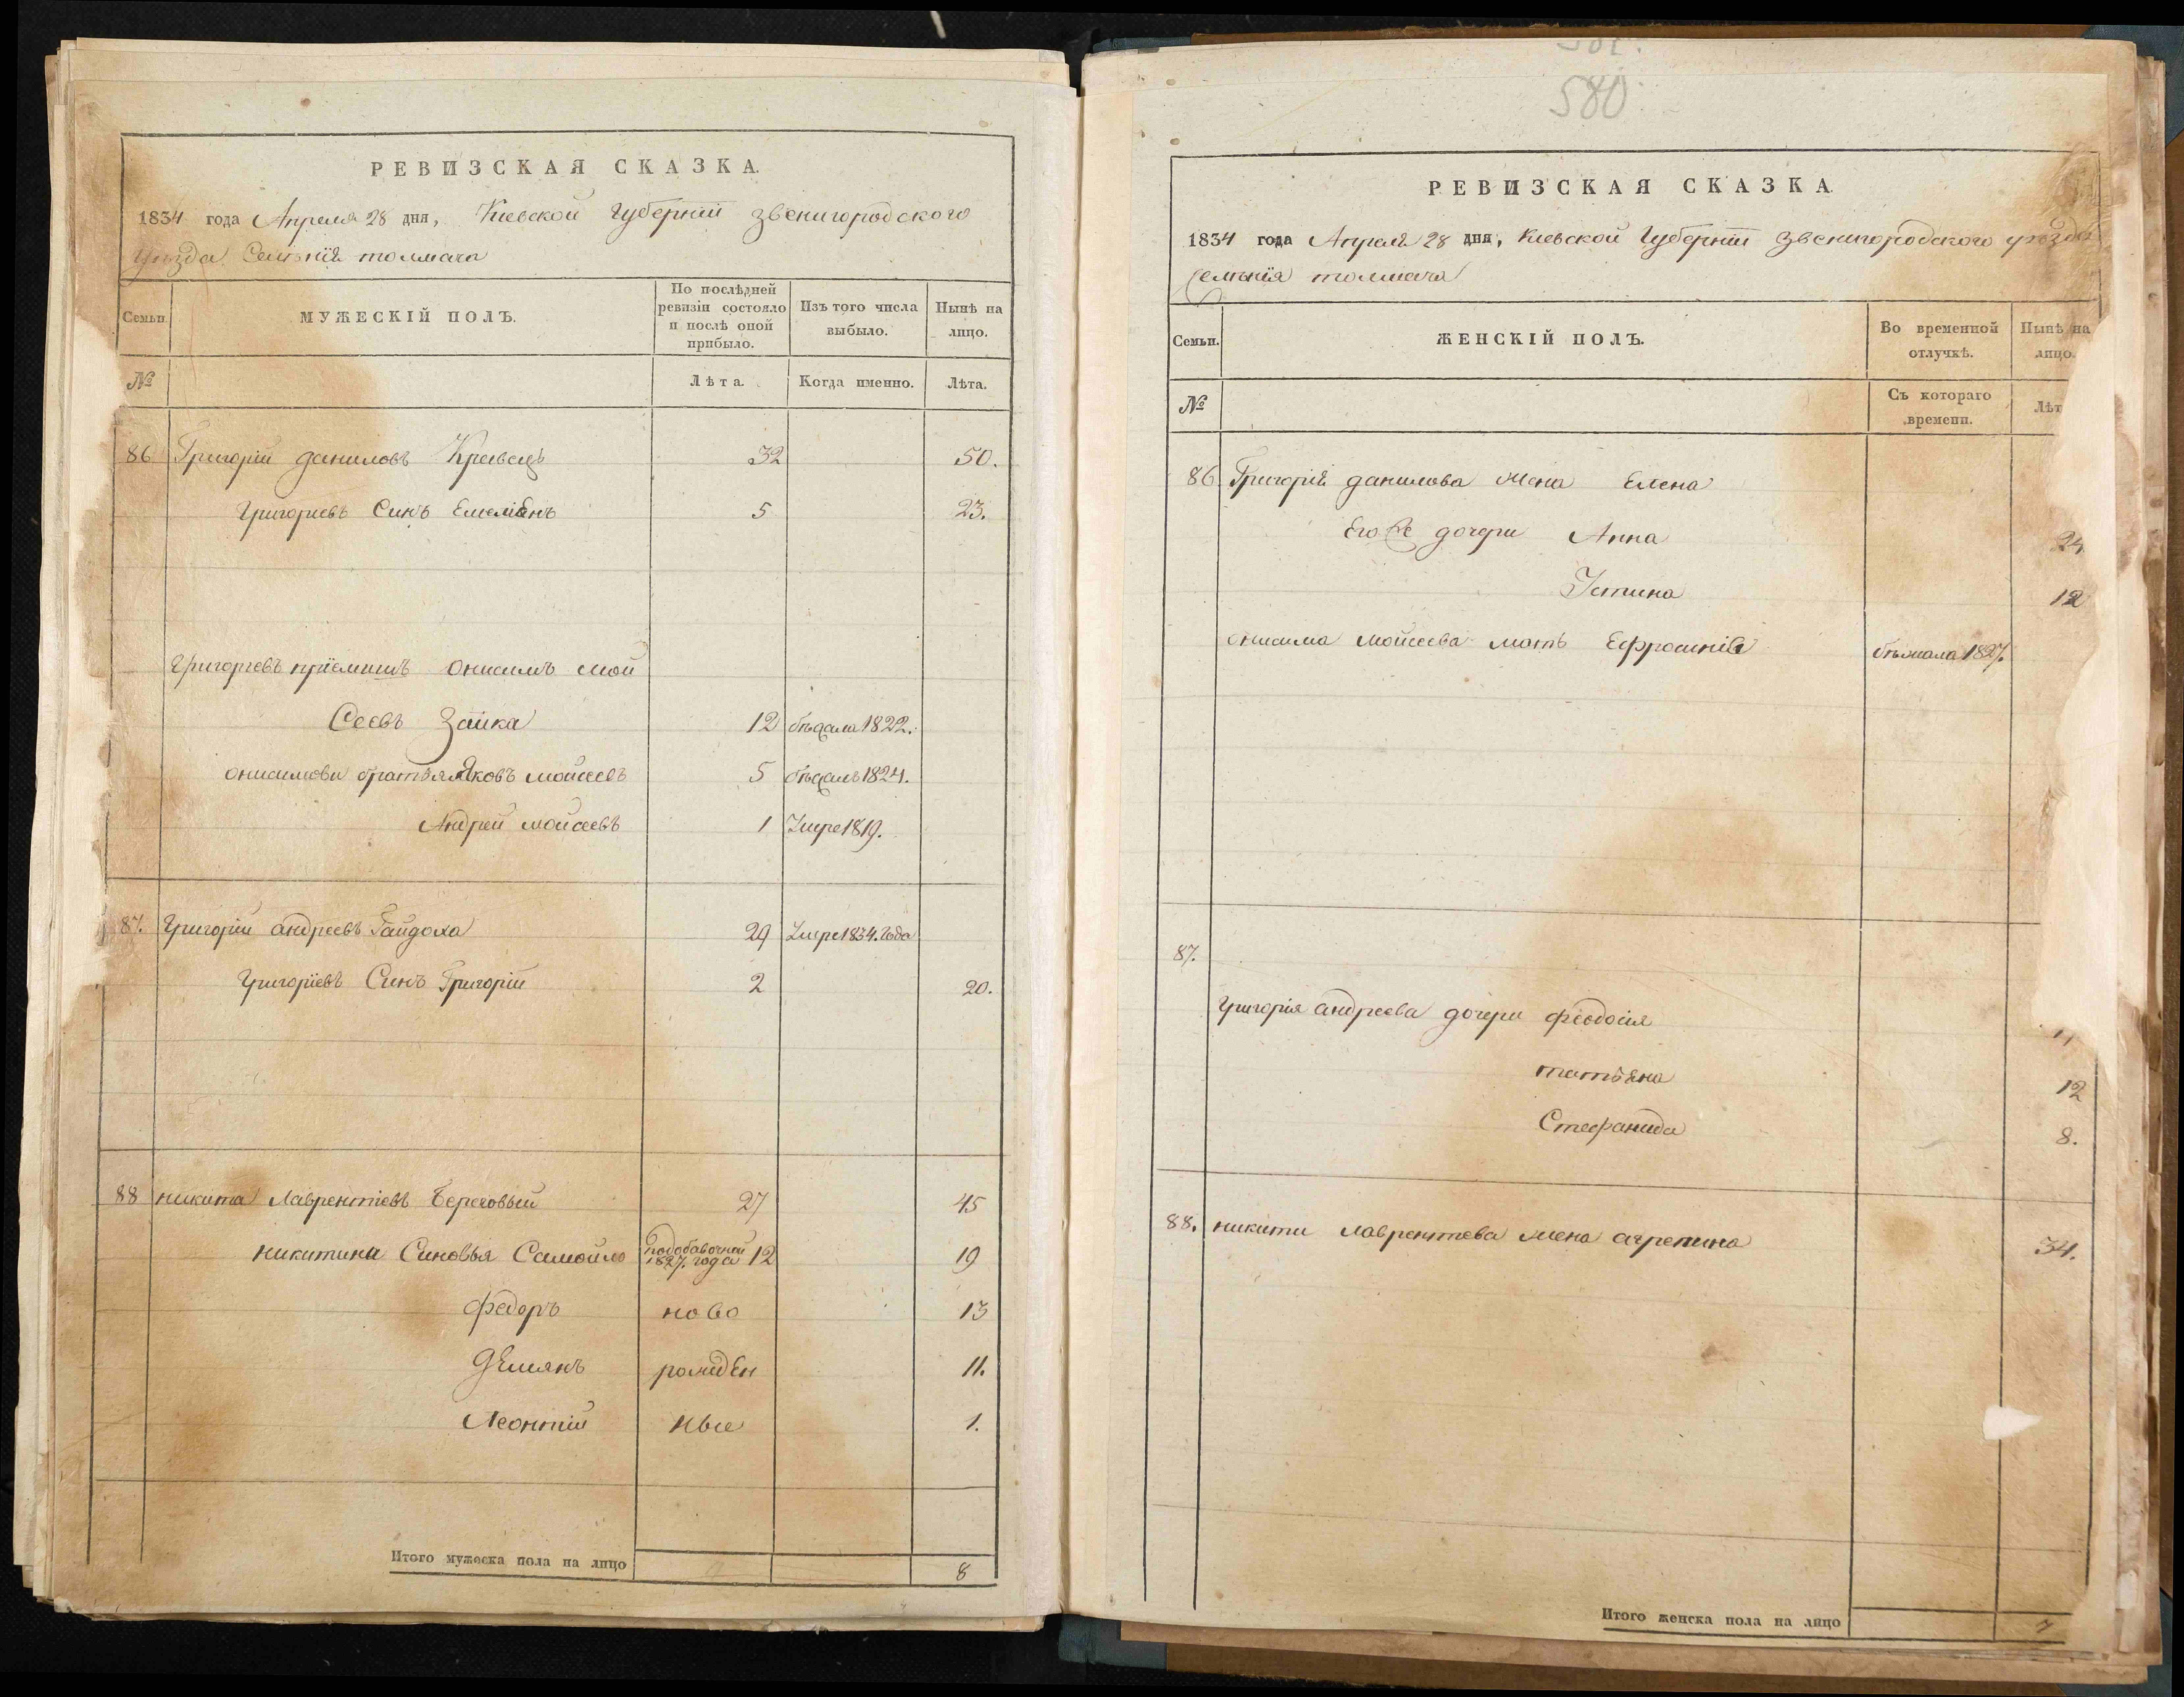 РЕВИЗСКАЯ СКАЗКА.
1834 года Апреля 28 дня, Киевской Губернии Звенигородского
уѣзда Селѣнія толмача
Семьи.
МУЖЕСКІЙ ПОЛЪ.
По послѣдней ревизіи состояло и послѣ оной прибыло.
Изъ того числа выбыло.
Нынѣ на лицо.
№
Лѣта.
Когда именно.
Лѣта.
86 Григорій даниловъ Кравецъ 32 50.
Григоріевъ Синъ Емеліянъ 5 23.
Григоріевъ пріємишъ онисимъ мой
Сеєвъ Заика 12 бѣжалъ 1822.
онисимови братья Яковъ мойсеевъ 5 бѣжалъ 1824.
Андрей мойсеевъ 1 Умре 1819.
87. Григорій андреевъ Гайдоха 29 Умре 1834. года
Григоріевъ Синъ Григорій 2 20.
88 никита Лаврентіевъ Береговый 27 45
никитина Синовья Самойло подобавочной 1827. года 12 19
федоръ ново 13
демянъ рожден 11.
Леонтій ные 1.
Итого мужеска пола на лицо 8
580
РЕВИЗСКАЯ СКАЗКА.
1834 года Апреля 28 дня, Киевской Губерніи Звенигородского уѣзда
Селѣнія толмача
Семьи.
ЖЕНСКІЙ ПОЛЪ.
Во временной отлучкѣ.
Нынѣ на лицо.
№
Съ котораго времени.
Лѣт
86. Григорія данилова жена Елена
Его же дочери Анна 24
Устина 12
онисима мойсеева мать Ефросинія бѣжала 1827.
87.
Григорія андреева дочери феодосія
татьяна 12
Стефанида 8.
88. никити лаврентева жена агрепина 34.
Итого женска пола на лицо 7